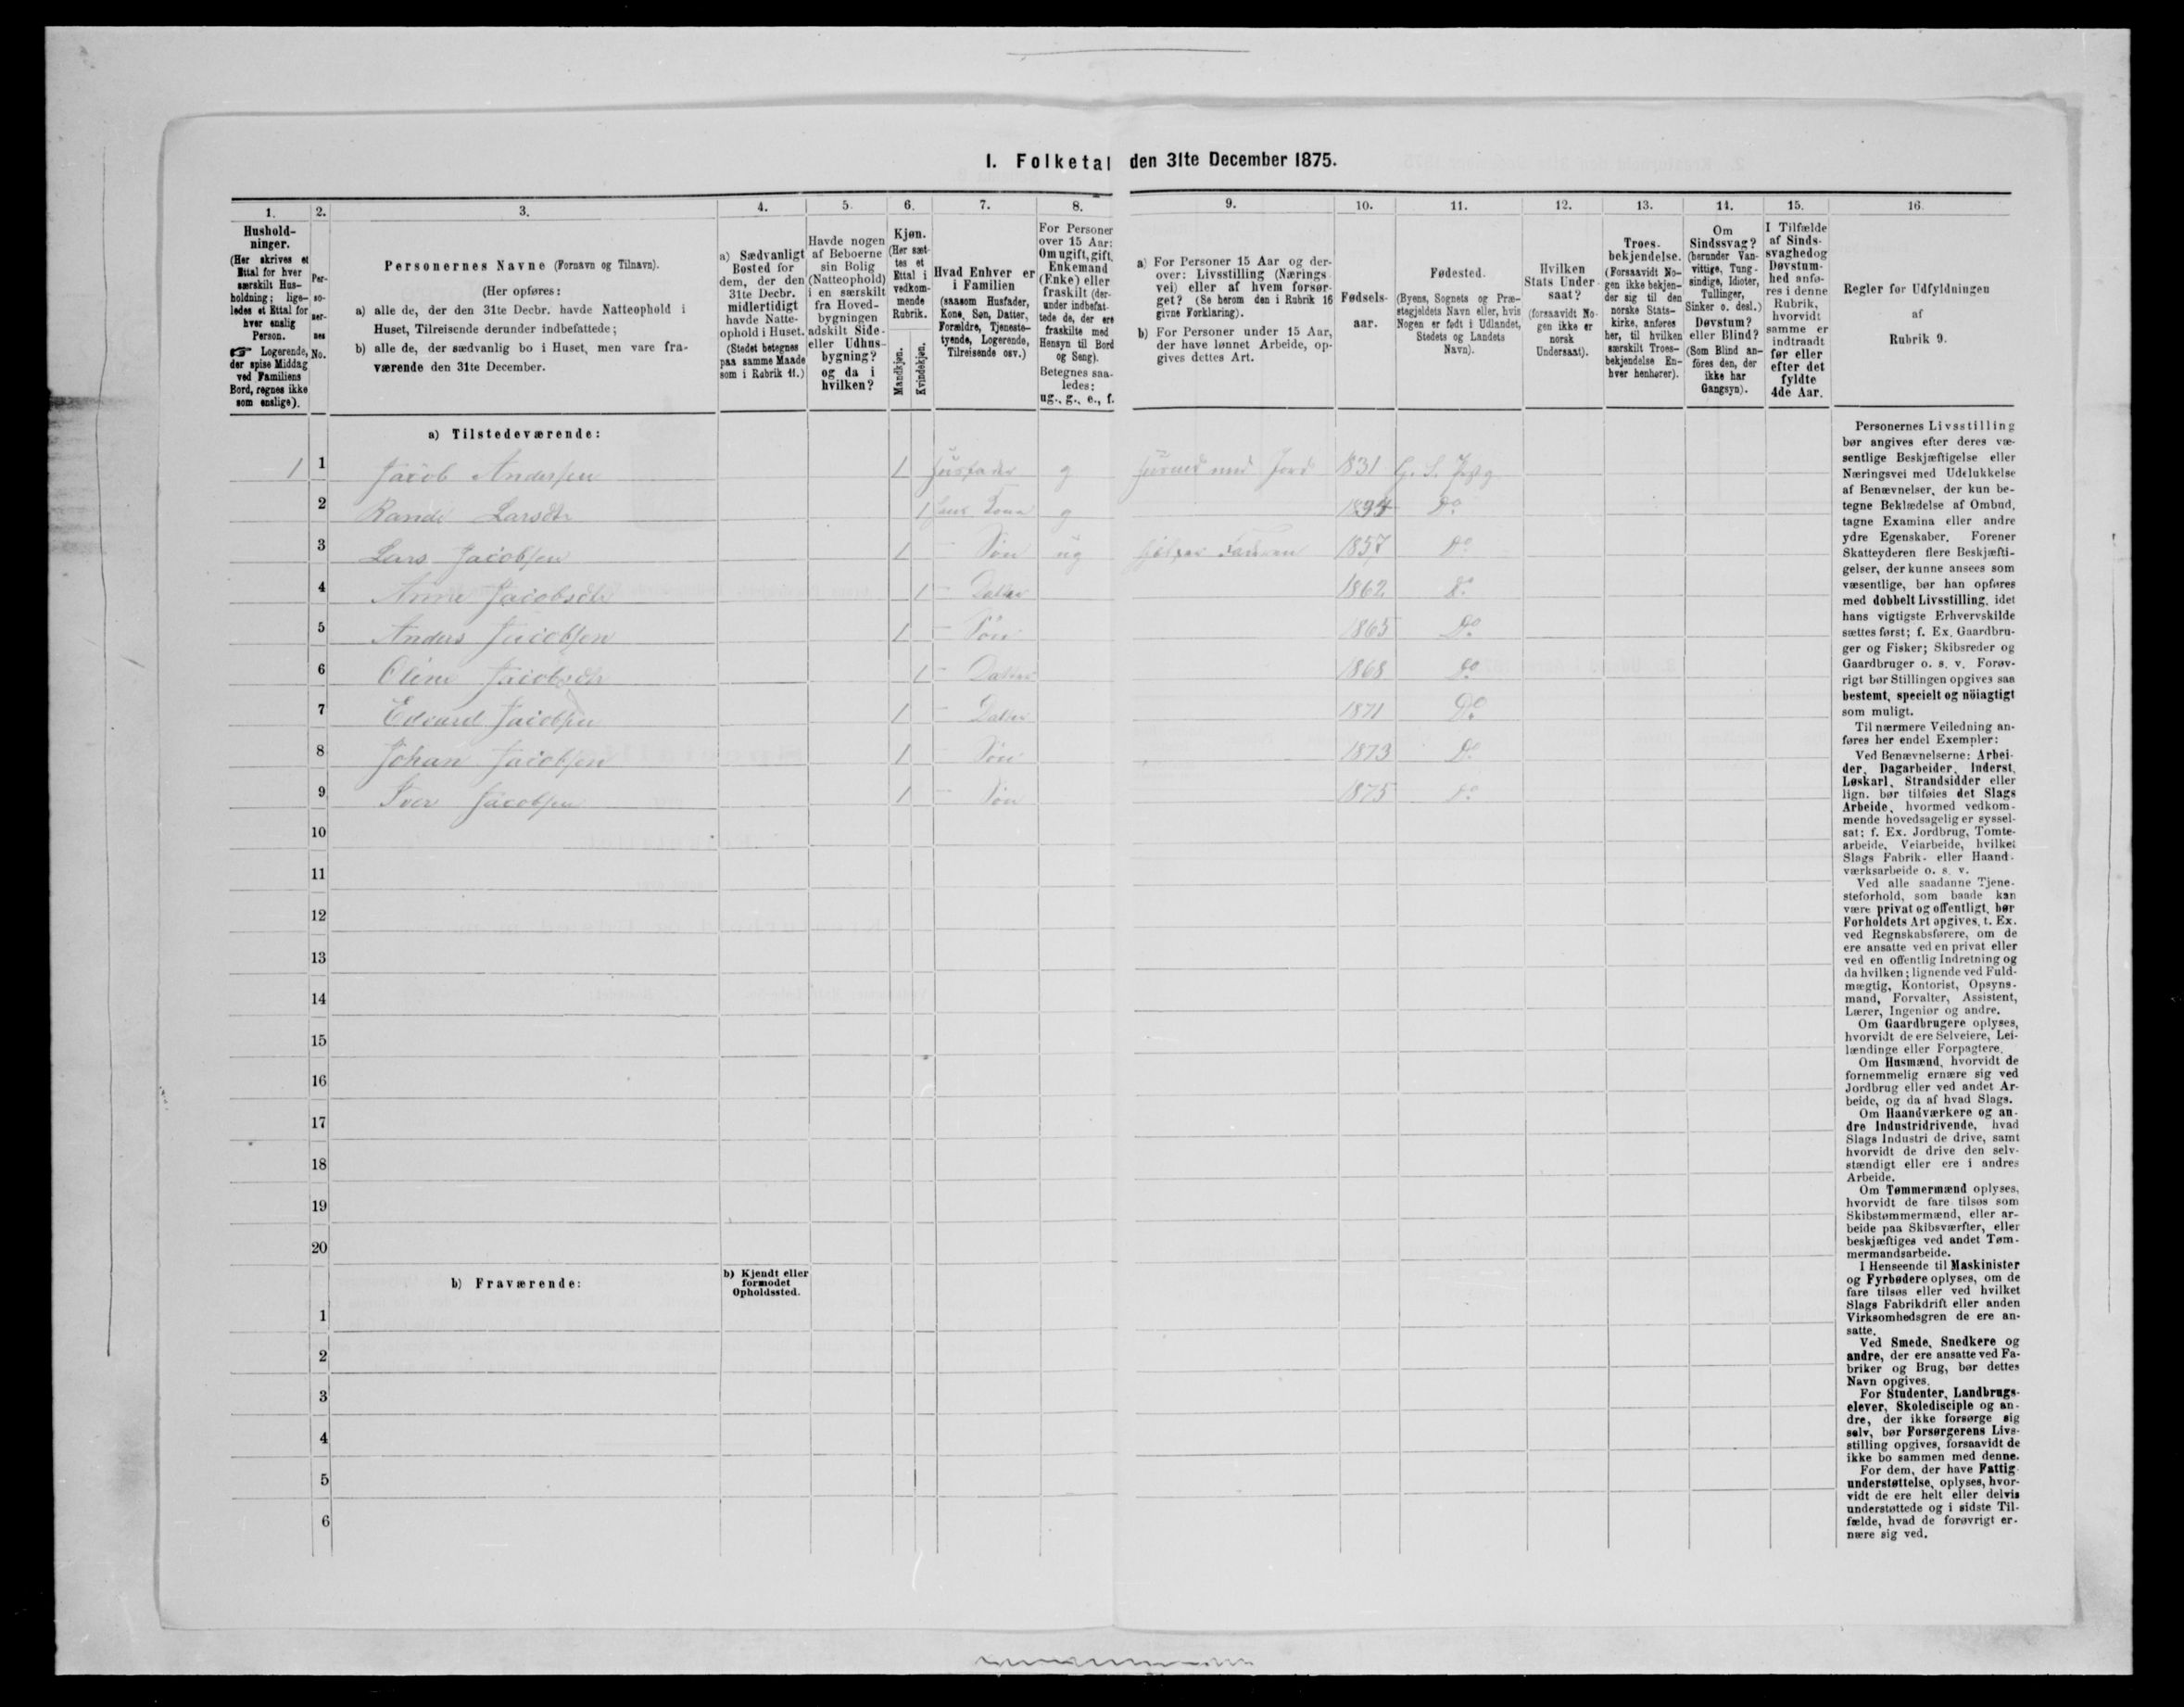 I. Folketal den 31te December 1875.
1.
Hushold-
ninger.
(Her skrives et
Ettal for hver
særskilt Hus-
holdning; lige-
ledes et Ettal for
hver enslig
Person.
☞ Logerende,
der spise Middag
ved Familiens
Bord, regnes ikke
som enslige).
2.
Per-
so-
ner-
nes
No.
3.
Personernes Navne (Fornavn og Tilnavn).
(Her opføres:
a) alle de, der den 31te Decbr. havde Natteophold i
Huset, Tilreisende derunder indbefattede;
b) alle de, der sædvanlig bo i Huset, men vare fra-
værende den 31te December.
4.
a) Sædvanligt
Bosted for
dem, der den
31te Decbr.
midlertidigt
havde Natte-
ophold i Huset.
(Stedet betegnes
paa samme Maade
som i Rubrik 11.)
5.
Havde nogen
af Beboerne
sin Bolig
(Natteophold)
i en særskilt
fra Hoved-
bygningen
adskilt Side-
eller Udhus-
bygning?
og da i
hvilken?
6.
Kjøn.
(Her sæt-
tes et
Ettal i
vedkom-
mende
Rubrik.
Mandkjøn.
Kvindekjøn.
7.
Hvad Enhver er
i Familien
(saasom Husfader,
Kone, Søn, Datter,
Forældre, Tjeneste-
tyende, Logerende,
Tilreisende osv.)
8.
For Personer
over 15 Aar:
Om ugift, gift,
Enkemand
(Enke) eller
fraskilt (der-
under indbefat-
tede de, der ere
fraskilte med
Hensyn til Bord
og Seng).
Betegnes saa-
ledes:
ug., g., e., f.
9.
a) For Personer 15 Aar og der-
over: Livsstilling (Nærings
vei) eller af hvem forsør-
get? (Se herom den i Rubrik 16
givne Forklaring).
b) For Personer under 15 Aar,
der have lønnet Arbeide, op-
gives dettes Art.
10.
Fødsels-
aar.
11.
Fødested.
(Byens, Sognets og Præ-
stegjeldets Navn eller, hvis
Nogen er født i Udlandet,
Stedets og Landets
Navn).
12.
Hvilken
Stats Under
saat?
(forsaavidt No-
gen ikke er
norsk
Undersaat).
13.
Troes-
bekjendelse.
(Forsaavidt No-
gen ikke bekjen-
der sig til den
norske Stats-
kirke, anføres
her, til hvilken
særskilt Troes-
bekjendelse En-
hver henhører).
14.
Om
Sindssvag?
(herunder Van-
vittige, Tung-
sindige, Idioter,
Tullinger,
Sinker o. desl.)
Døvstum?
eller Blind?
(Som Blind an-
føres den, der
ikke har
Gangsyn).
15.
I Tilfælde
af Sinds-
svaghedog
Døvstum-
hed anfø-
res i denne
Rubrik,
hvorvidt
samme er
indtraadt
før eller
efter det
fyldte
4de Aar.
16.
Regler for Udfyldningen
af
Rubrik 9.
a) Tilstedeværende:
1 1 Jacob Anderssen 1 Husfader g Husmd med Jord 1831
2 Randi Larsdtr 1 hans Kona g Do
3 Lars Jacobsen 1 – Søn ug hjelper Faderen 1857 Do
4 Anne Jacobsdtr 1 – Datter 1862 Do
5 Anders Jacobsen 1 – Søn 1865 Do
6 Oline Jacobsdtr 1 – Datter 1868 Do
7 Edvard Jacobsen 1 – Datter 1871 Do
8 Johan Jacobsen 1 – Søn 1873 Do
9 Iver Jacobsen 1 – Søn 1875 Do
10
11
12
13
14
15
16
17
18
19
20
b) Fraværende:
b) Kjendt eller
formodet
Opholdssted.
1
2
3
4
5
6
Personernes Livsstilling
bør angives efter deres væ-
sentlige Beskjæftigelse eller
Næringsvei med Udelukkelse
af Benævnelser, der kun be-
tegne Beklædelse af Ombud,
tagne Examina eller andre
ydre Egenskaber. Forener
Skatteyderen flere Beskjæfti-
gelser, der kunne ansees som
væsentlige, bør han opføres
med dobbelt Livsstilling, idet
hans vigtigste Erhvervskilde
sættes først; f. Ex. Gaardbru-
ger og Fisker; Skibsreder og
Gaardbruger o. s. v. Forøv-
rigt bør Stillingen opgives saa
bestemt, specielt og nöiagtigt
som muligt.
Til nærmere Veiledning an-
føres her endel Exempler:
Ved Benævnelserne: Arbei-
der, Dagarbeider, Inderst,
Løskarl, Strandsidder eller
lign. bør tilføies det Slags
Arbeide, hvormed vedkom-
mende hovedsagelig er syssel-
sat; f. Ex. Jordbrug, Tomte-
arbeide, Veiarbeide, hvilket
Slags Fabrik- eller Haand-
værksarbeide o. s. v.
Ved alle saadanne Tjene-
steforhold, som baade kan
være privat og offentligt, bør
Forholdets Art opgives, t. Ex.
ved Regnskabsførere, om de
ere ansatte ved en privat eller
ved en offentlig Indretning og
da hvilken; lignende ved Fuld-
mægtig, Kontorist, Opsyns-
mand, Forvalter, Assistent,
Lærer, Ingeniør og andre.
Om Gaardbrugere oplyses,
hvorvidt de ere Selveiere, Lei-
lændinge eller Forpagtere.
Om Husmænd, hvorvidt de
fornemmelig ernære sig ved
Jordbrug eller ved andet Ar-
beide, og da af hvad Slags.
Om Haandværkere og an-
dre Industridrivende, hvad
Slags Industri de drive, samt
hvorvidt de drive den selv-
stændigt eller ere i andres
Arbeide.
Om Tømmermænd oplyses,
hvorvidt de fare tilsøs som
Skibstømmermænd, eller ar-
beide paa Skibsværfter, eller
beskjæftiges ved andet Tøm-
mermandsarbeide.
I Henseende til Maskinister
og Fyrbødere oplyses, om de
fare tilsøs eller ved hvilket
Slags Fabrikdrift eller anden
Virksomhedsgren de ere an-
satte.
Ved Smede, Snedkere og
andre, der ere ansatte ved Fa-
briker og Brug, bør dettes
Navn opgives.
For Studenter, Landbrugs-
elever, Skoledisciple og an-
dre, der ikke forsørge sig
selv, bør Forsørgerens Livs-
stilling opgives, forsaavidt de
ikke bo sammen med denne.
For dem, der have Fattig-
understøttelse, oplyses, hvor-
vidt de ere helt eller delvis
understøttede og i sidste Til-
fælde, hvad de forøvrigt er-
nære sig ved.